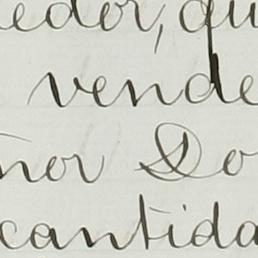 edor, qu
vende
ñor Do
cantida